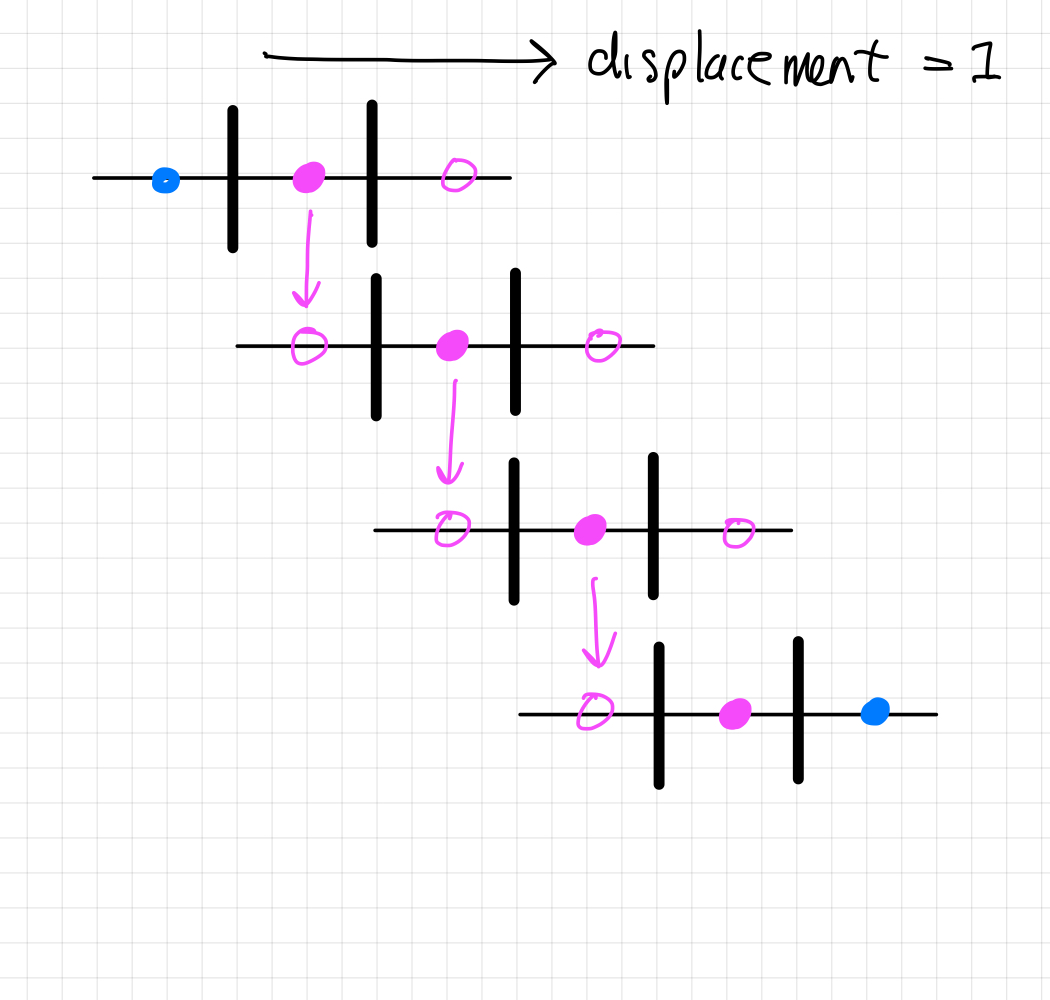 displacement = 1